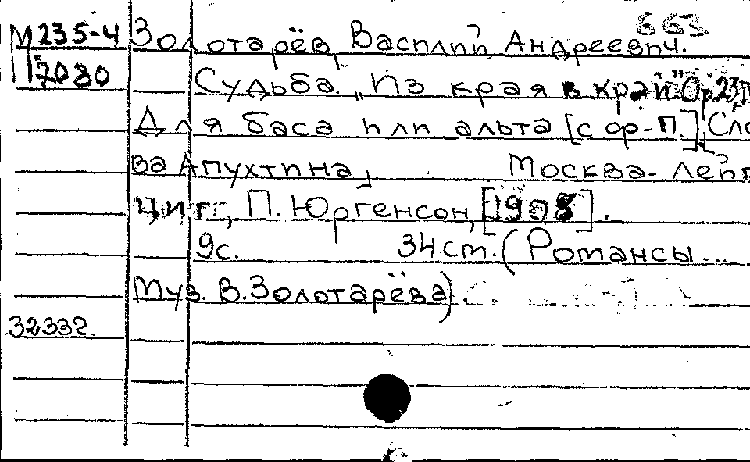 663
М 235-4 Золотарёв, Василий Андреевич.
7080 Судьба. „Из края в край" Ор. 23
Для баса или альта [с ор-п.] Сло
ва Апухтина, Москва- Лейп
циг, П. Юргенсон, [1908].
9с. 34cm. (Романсы...
муз. В. Золотарёва).
32332.